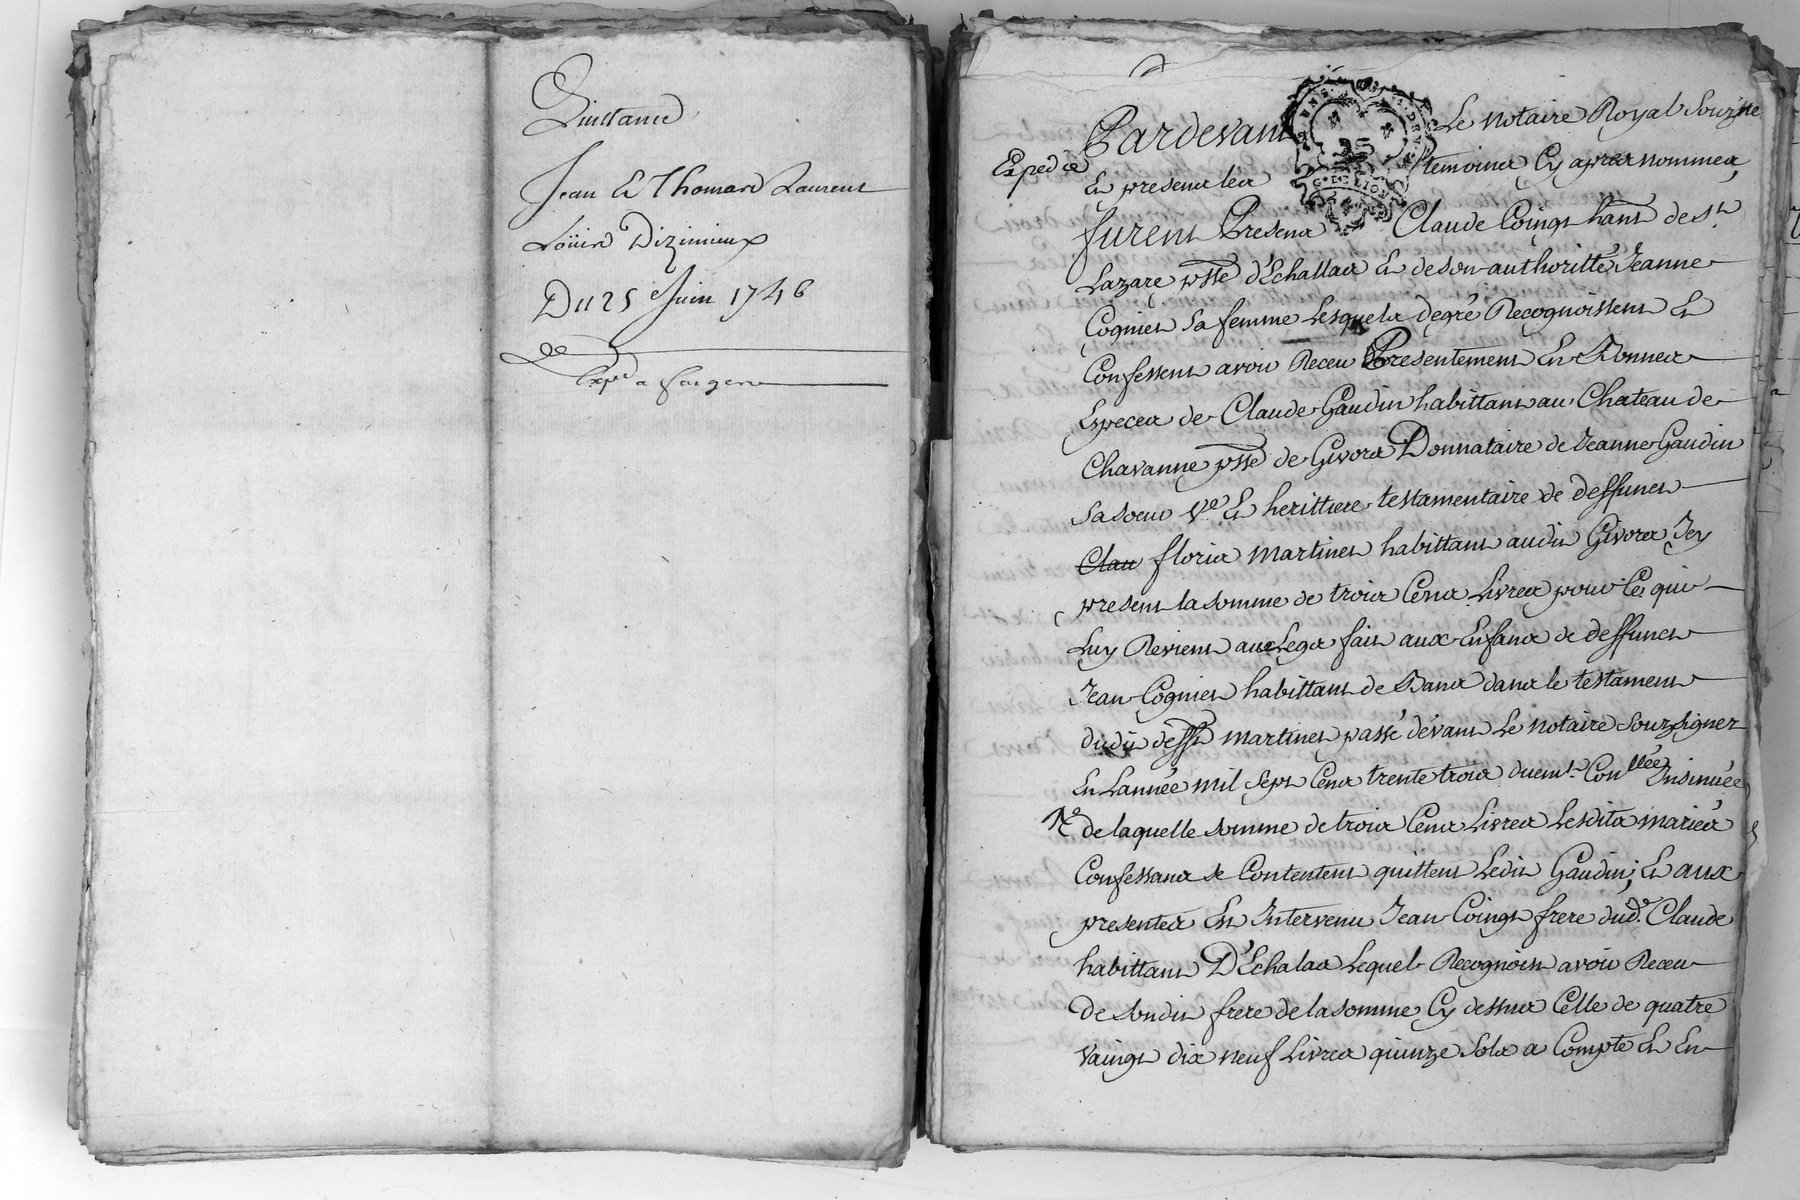 Quittance
Jean Et Thomas Laurent
Loüis Dizimieux
Du 25 Juin 1746
De
Expedié
Pardevant Le notaire Royal Souz.né
Et presence des temoins Cy apres nommez
furent Presens Claude Coingt hant de St
Lazare psse d'Echallas Et de son authoritté Jeanne
Cogniet Sa femme Lesquels de gré Recognoissent Et
Confessent avoir Receu Presentement En Bonnes
Especes de Claude Gaudin habittant au Chateau de
Chavanne psse de Givors Donnataire de Jeanne Gaudin
Sa soeur Ve Et herittiere testamentaire de deffunct
Clau floris Martinet habittant audit Givors Icy
present la somme de trois Cens Livres pour Ce qui
Luy Revient au Legs fait aux Enfans de deffunct
Jean Cogniet habittant de Bans dans le testament
dudit defft Martinet passé dévant Le notaire Souzsigner
En Lannée mil Sept Cens trente trois duemt Conllée Insinuée
De laquelle Somme de trois Cens Livres Lesdits mariés
Confessans se Contentent quittent Ledit Gaudin; Et aux
presentes Est Intervenu Jean Coingt frere dud. Claude
habittant D'Echalas Lequel Recognoist avoir Receu
De Sondit frere de la somme Cy dessus Celle de quatre
vaingt dix neuf Livres quinze Sols a Compte Et En